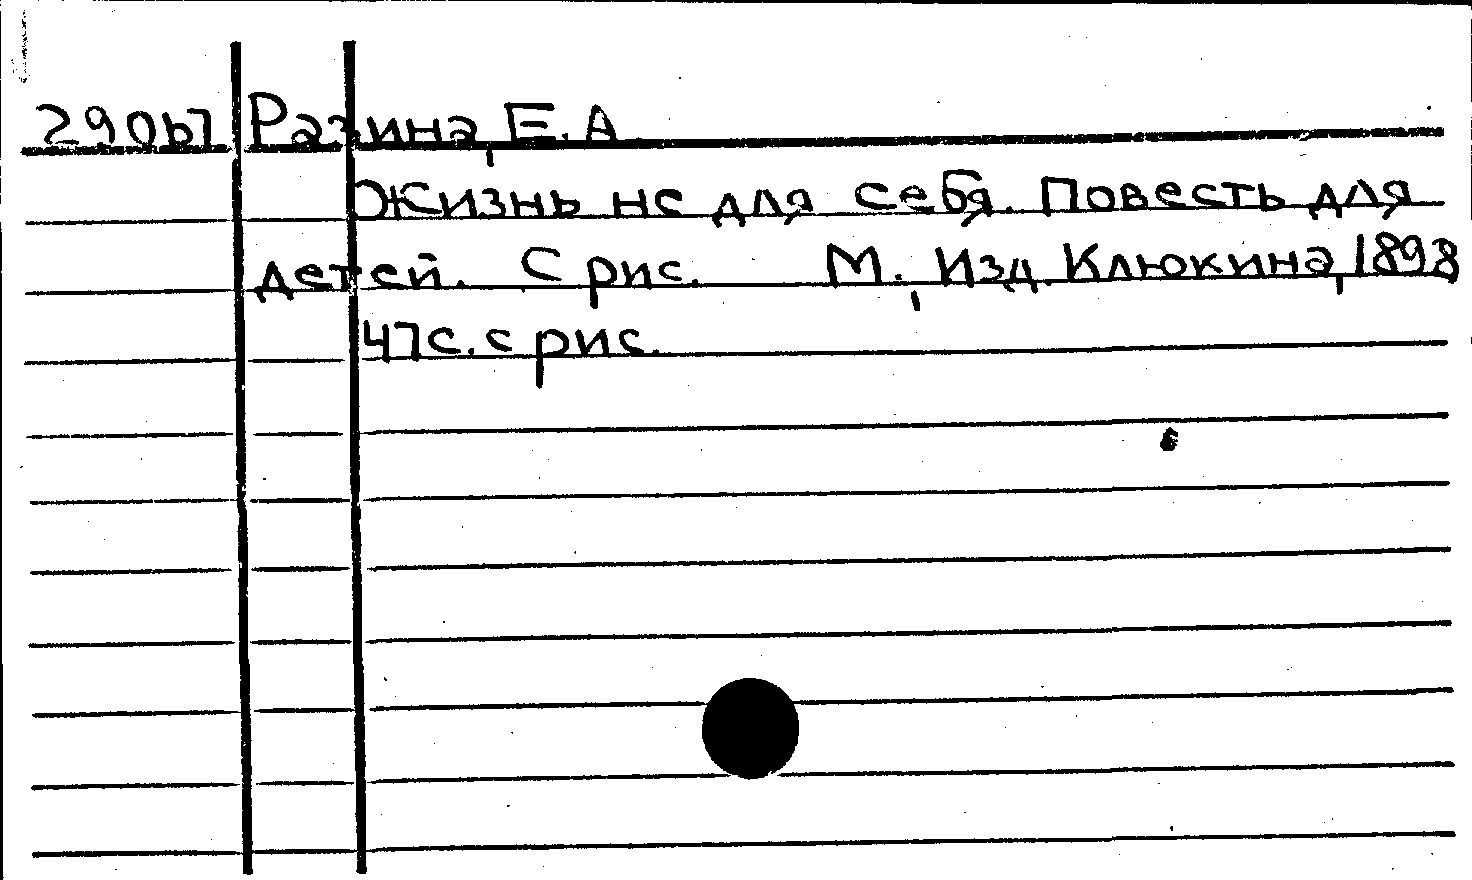 290b7 Разина, Е. А
Жизнь не для себя. Повесть для
детей. С рис. М., Изд. Клюкина, 1898
47с. с рис.